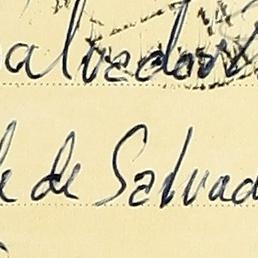 alvador
de Salvad